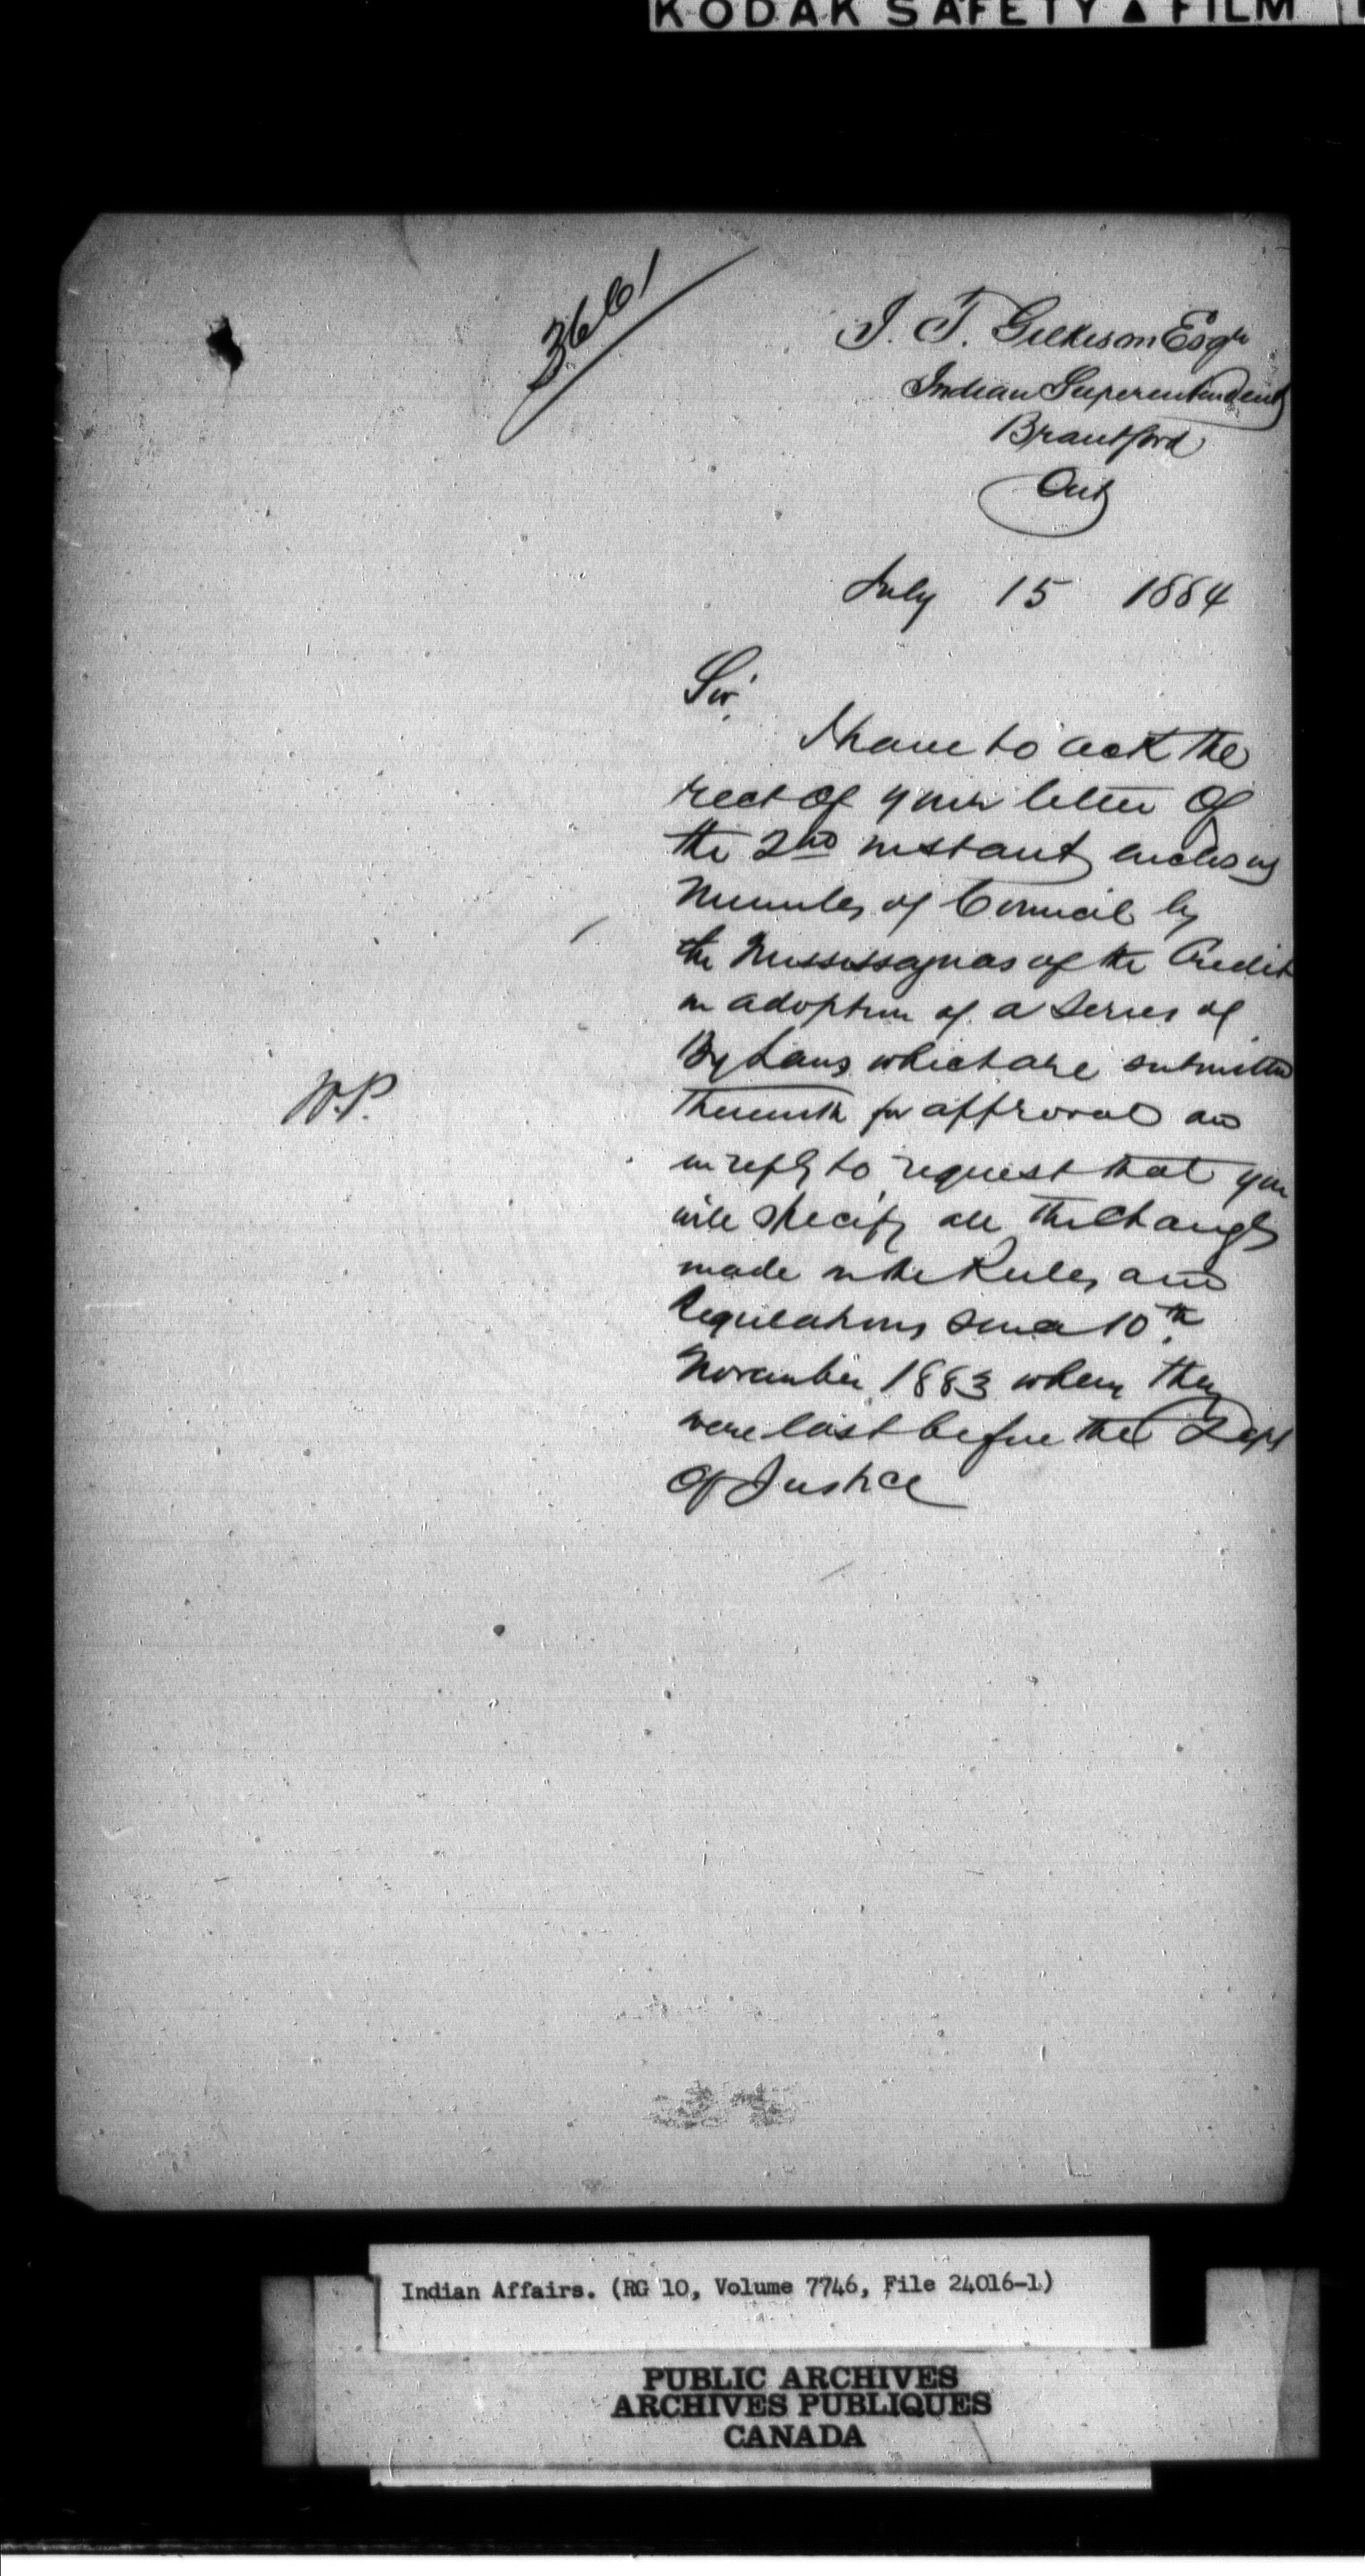 KODAK SAFETY ▲ FILM
3661
J. T. Gilkison Esqr
Indian Superintendent
Brantford
Ont
July 15 1884
Sir,
I have to ack the
rect of your letter of
the 2nd instant enclosing
Minutes of Council by
the Mississaguas of the Credit
in adoption of a series of
By Laws which are submitted
therewith for approval and
in reply to request that you
will specify all the changes
W.P.
made in the Rules and
Regulations since 10th
November 1883 when they
were last before the Dept
of Justice
Indian Affairs. (RG 10, Volume 7746, File 24016-1)
PUBLIC ARCHIVES
ARCHIVES PUBLIQUES
CANADA